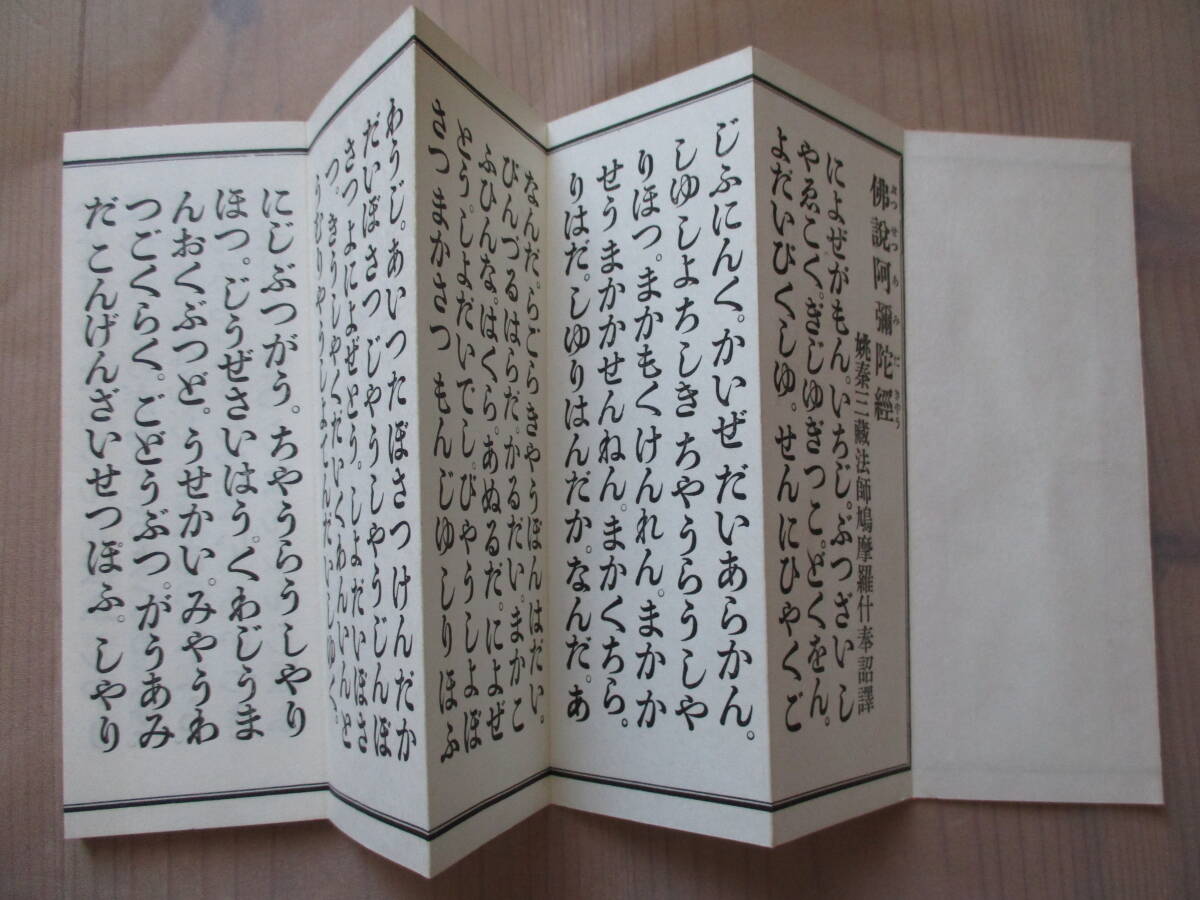 佛說阿彌陀經
姚秦三藏法師鳩摩羅什奉詔譯
によぜがもん。いちじ。ぶつざいし
やゑこく。ぎじゆぎつこ。どくをん。
よだいびくしゆ。せんにひやくご
じふにんく。かいぜだいあらかん。
しゆしよちしきちやうらうしや
りほつ。まかもくけんれん。まかか
せうまかかせんねん。まかくちら。
りはだ。しゆりはんだか。なんだ。あ
なんだ。らごらきやうぼんはだい。
びんづるはらだ。かるだい。まかこ
ふひんな。はくら。あぬるだ。によぜ
とう。しよだいでし。びやうしよぼ
さつまかさつ もんじゆしりほふ
わうじ。あいつたぼさつけんだか
だいぼさつ じやうしやうじんぼ
さつよによぜとう。しよだいぼさ
つ。きうしやくだいくわんいんと
うむりやうしよてんだいしゆく。
にじぶつがう。ちやうらうしやり
ほつ。じうぜさいはう。くわじうま
んおくぶつど。うせかい。みやうわ
つごくらく。ごどうぶつ。がうあみ
だこんげんざいせつぽふ。しやり